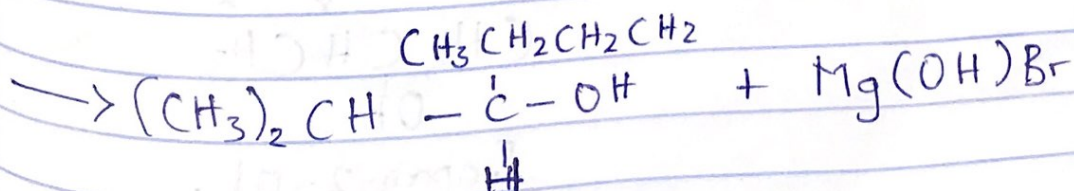 CH3CH2CH2CH2
→ (CH3)2 CH - C - OH + Mg(OH)Br
H